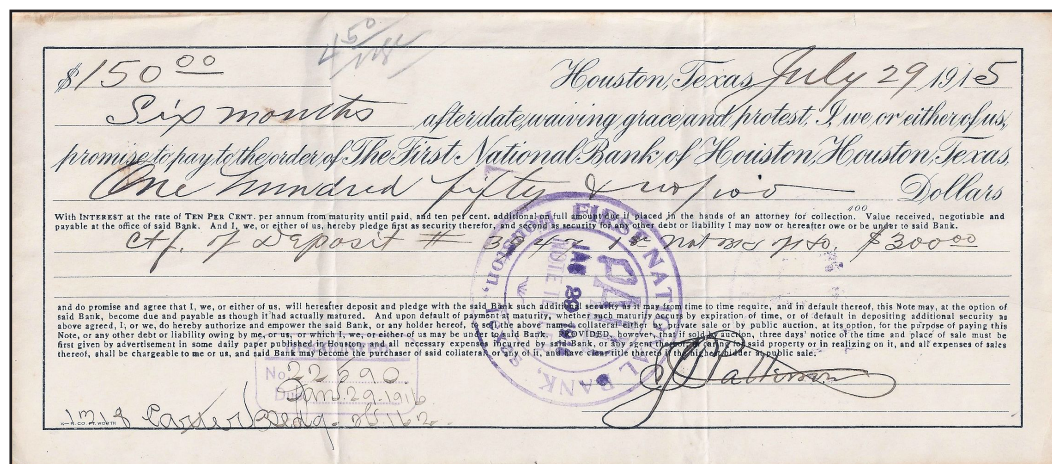 $150 00 Houston, Texas, July 29 1915
Six months after date, waiving grace and protest, I, we, or either of us,
promise to pay to the order of The First National Bank of Houston, Houston, Texas,
One hundred fifty & no/100 Dollars
With INTEREST at the rate of TEN PER CENT. per annum from maturity until paid, and ten per cent. additional on full amount due if placed in the hands of an attorney for collection. Value received, negotiable and
payable at the office of said Bank. And I, we, or either of us, hereby pledge first as security therefor, and second as security for any other debt or liability I may now or hereafter owe or be under to said Bank.
Ctf. of Deposit # $300 00
and do promise and agree that I, we, or either of us, will hereafter deposit and pledge with the said Bank such additional security as it may from time to time require, and in default thereof, this Note may, at the option of
said Bank, become due and payable as though it had actually matured. And upon default of payment at maturity, whether such maturity occurs by expiration of time, or of default in depositing additional security as
above agreed, I, or we, do hereby authorize and empower the said Bank, or any holder hereof, to sell the above named collateral either at private sale or by public auction, at its option, for the purpose of paying this
Note, or any other debt or liability owing by me, or us, or which I, we, or either of us may be under to said Bank. PROVIDED, however, that if sold by auction, three days' notice of the time and place of sale must be
first given by advertisement in some daily paper published in Houston, and all necessary expense incurred by said Bank, or any agent thereof, caring for said property or in realizing on it, and all expenses of sales
thereof, shall be chargeable to me or us, and said Bank may become the purchaser of said collateral, or any of it, and have clear title thereto if the highest bidder at public sale.
FIRST NATIONAL BANK,
PAID
JAN 29 1916
No. 22690
Due Jan. 29. 1916
Carter Bldg.